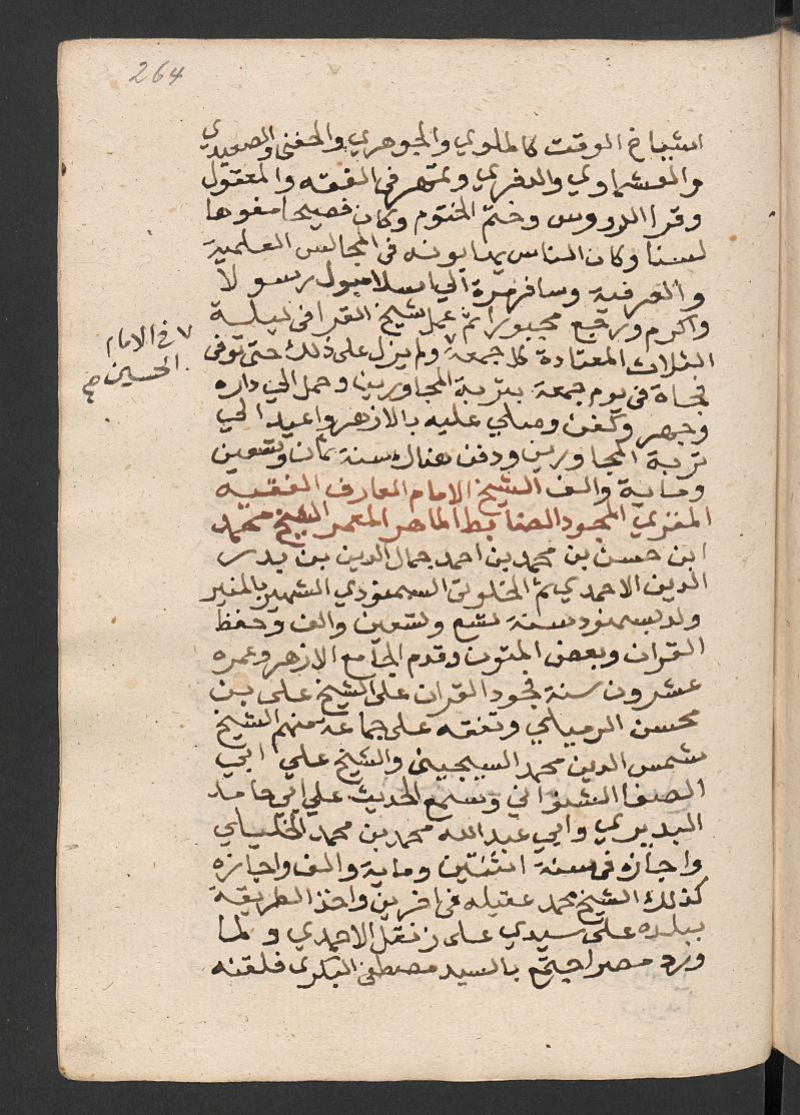 264
اشياخ الوقت كالملوي والجوهري والحفنى والصعيدي
والعشماوي والدفري وتمهر فى الفقه والمعقول
وقرا الدروس وختم الختوم وكان فصيحا مفوها
لسنا وكان الناس يهابونه فى المجالس العلمية
والعرفية وسافر مرة الي اسلامبول رسولا
واكرم ورجع مجبورا ثم عمل شيخ القرا فى ليلة
الثلاث المعتادة كل جمعة ولم يزل على ذلك حتى توفى
٧ فى الامام
الحسين صح
فجاة فى يوم جمعة بتربة المجاورين وحمل الي داره
وجهز وكفن وصلي عليه بالازهر واعيد الي
تربة المجاورين ودفن هناك سنة ثمان وتسعين
وماية والف الشيخ الامام العارف الفقيه
المقري المجود الضابط الماهر المعمر الشيخ محمد
ابن حسن بن محمد بن احمد جمال الدين بن بدر
الدين الاحمدي ثم الخلوتى السمنودي الشهير بالمنير
ولد بسمنود سنة تسع وتسعين والف وحفظ
القران وبعض المتون وقدم الجامع الازهر وعمره
عشرون سنة فجود القران على الشيخ على بن
محسن الرميلي وتفقه على جماعة منهم الشيخ
شمس الدين محمد السجينى والشيخ علي ابي
الصفا الشنوانى وسمع الحديث علي ابي حامد
البديري وابي عبد الله محمد بن محمد الخليلي
واجازه فى سنة اثنتين وماية والف واجازه
كذلك الشيخ محمد عقيله فى اخرين واخذ الطريقة
ببلده على سيدي على زنفل الاحمدي ولما
ورد مصر اجتمع بالسيد مصطفى البكرى فلقنه